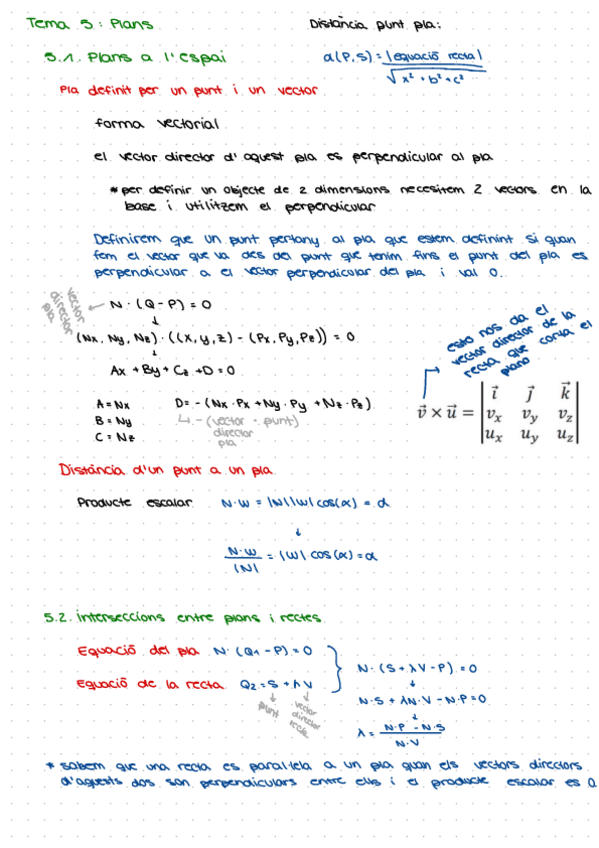 Tema 5: Plans
Distància punt pla:
5.1. Plans a l'espai
d(P,S) = |equació recta|
√x² + b² + c²
Pla definit per un punt i un vector
forma vectorial
el vector director d'aquest pla es perpendicular al pla
* per definir un objecte de 2 dimensions necesitem 2 vectors en la
base i utilitzem el perpendicular
Definirem que un punt pertany al pla que estem definint si quan
fem el vector que va des del punt que tenim fins el punt del pla es
perpendicular a el vector perpendicular del pla i val 0.
vector
director
pla
← N · (Q - P) = 0
↓
(Nx, Ny, Nz) · ((x, y, z) - (Px, Py, Pz)) = 0
↓
Ax + By + Cz + D = 0
esto nos da el
vector director de la
recta que corta el
plano
A = Nx
D = - (Nx · Px + Ny · Py + Nz · Pz)
B = Ny
↳ - (vector · punt)
director
pla
C = Nz
v⃗ × u⃗ = | i⃗ j⃗ k⃗ |
| vx vy vz |
| ux uy uz |
Distància d'un punt a un pla
Producte escalar N·W = |N||W| cos(α) = d
↓
N·W / |N| = |W| cos(α) = d
5.2. interseccions entre plans i rectes
Equació del pla N · (Q1 - P) = 0
Equació de la recta Q2 = S + λV
↓ punt
↓ vector
director
recta
N · (S + λV - P) = 0
↓
N·S + λN·V - N·P = 0
↓
λ = N·P - N·S / N·V
* sabem que una recta es paral·lela a un pla quan els vectors directors
d'aquests dos son perpendiculars entre ells i el producte escalar es 0